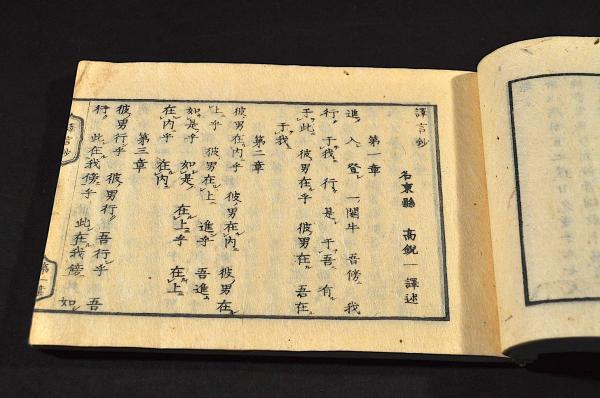 譯言鈔
名東縣 高銳一譯述
第一章
進 入 登 一閹牛 吾傍 我
行 于我 行 是 于吾 有
于此 彼男在乎 彼男在 吾在
于我
第二章
彼男在内乎 彼男在内 彼男在
上乎 彼男在上 進乎 吾進
如是乎 如是 在上乎 在上
在内乎 在内
第三章
彼男行乎 彼男行 吾行乎 吾
行 此在我傍乎 此在我傍 如